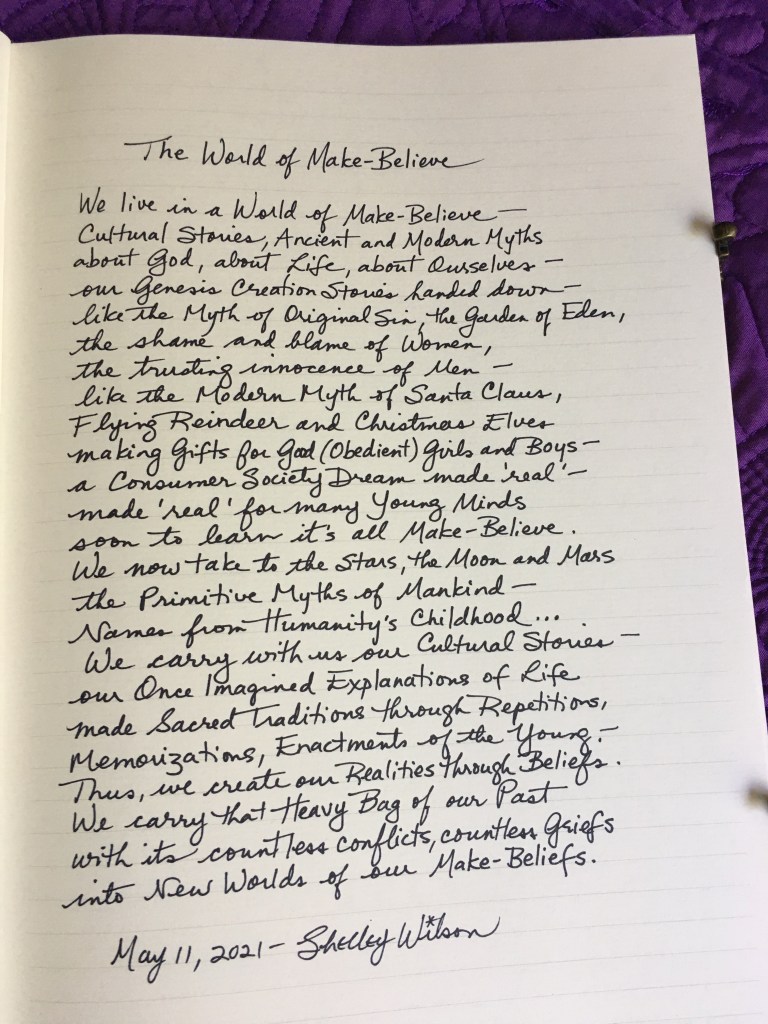 The World of Make-Believe
We live in a World of Make-Believe —
Cultural Stories, Ancient and Modern Myths
about God, about Life, about Ourselves —
our Genesis Creation Stories handed down —
like the Myth of Original Sin, the Garden of Eden,
the shame and blame of Women,
the trusting innocence of Men —
like the Modern Myth of Santa Claus,
Flying Reindeer and Christmas Elves
making Gifts for Good (Obedient) Girls and Boys —
a Consumer Society Dream made 'real' —
made 'real' for many Young Minds
soon to learn it's all Make-Believe.
We now take to the Stars, the Moon and Mars
the Primitive Myths of Mankind —
Names from Humanity's Childhood...
We carry with us our Cultural Stories —
our Once Imagined Explanations of Life
made Sacred Traditions through Repetitions,
Memorizations, Enactments of the Young. —
Thus, we create our Realities through Beliefs.
We carry that Heavy Bag of our Past
with its countless conflicts, countless Griefs
into New Worlds of our Make-Beliefs.
May 11, 2021 — Shelley Wilson